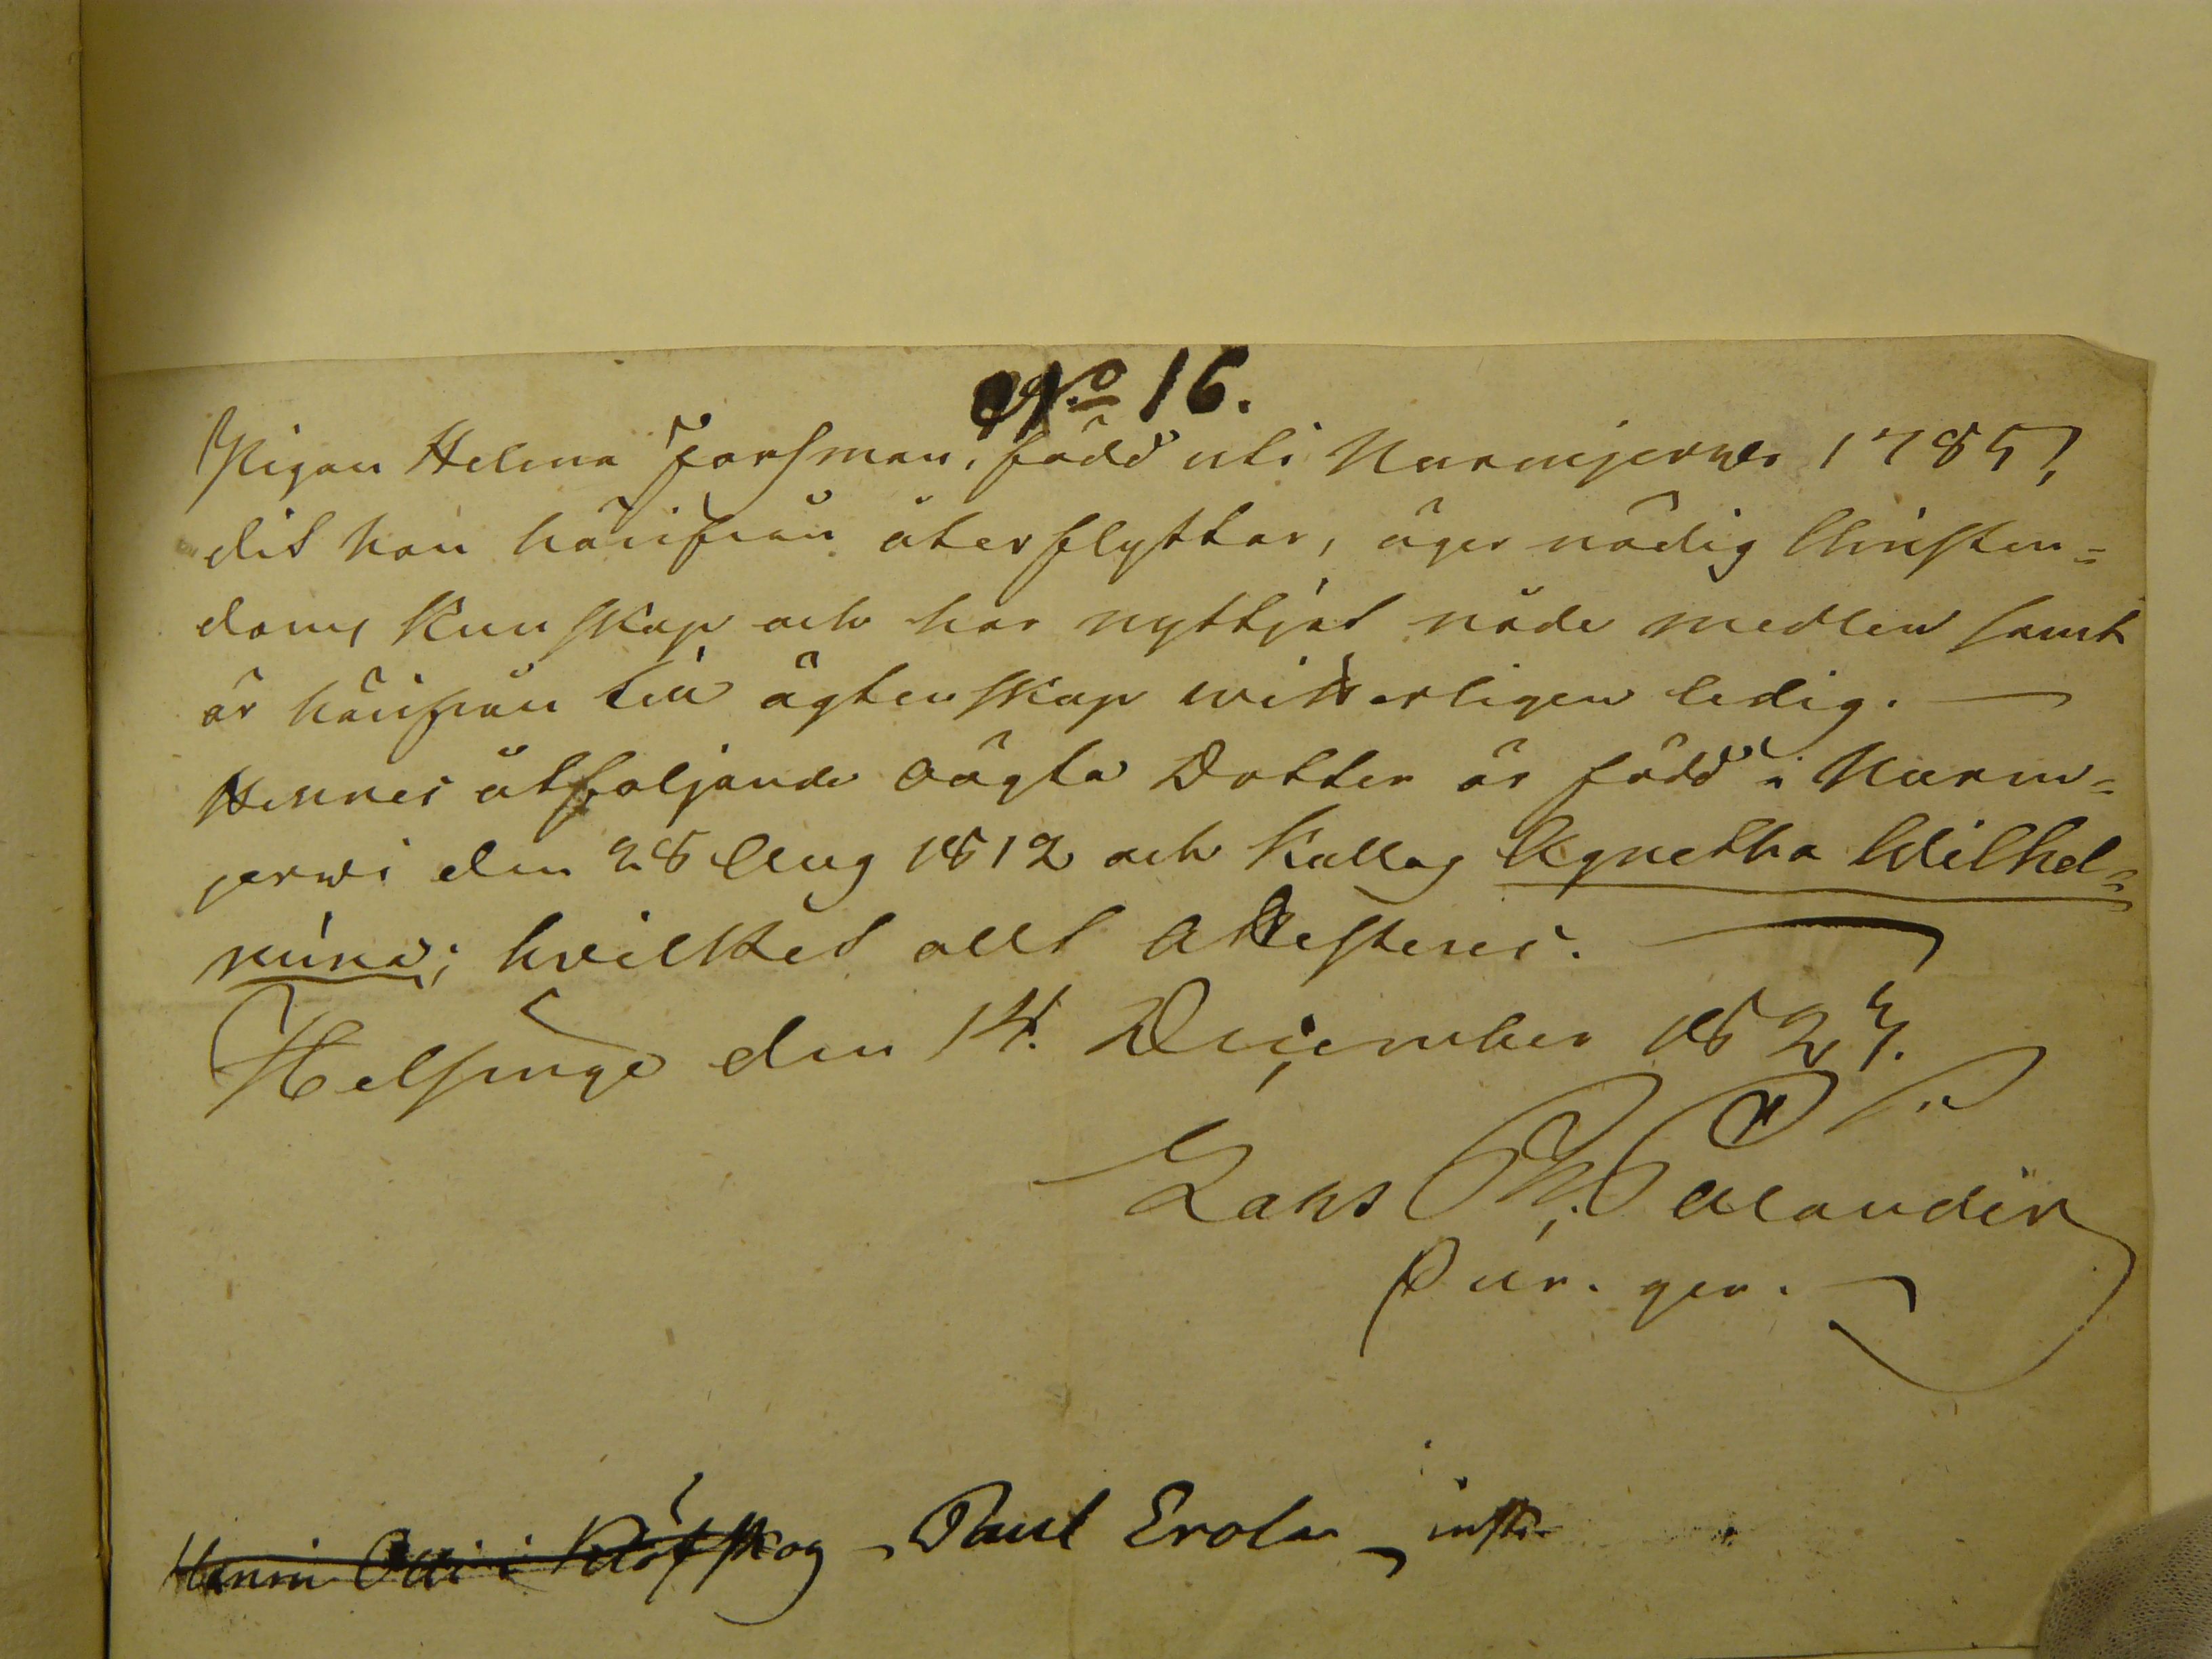 No 16.
Pigan Helena Forsman, född uti Nurmijerwi 1785,
dit hon härifrån återflyttar, äger nödig Christen=
doms kunskap och har nyttjat nåde medlen samt
är härifrån till ägtenskap witterligen ledig. —
Hennes åtföljande oägta Dotter är född i Nurm=
jerwi den 28 Aug 1812 och kallas Agnetha Wilhel=
mina; hvilket allt attesteres. —
Helsinge den 14. December 1825.
Lars Palander
Paul Erola